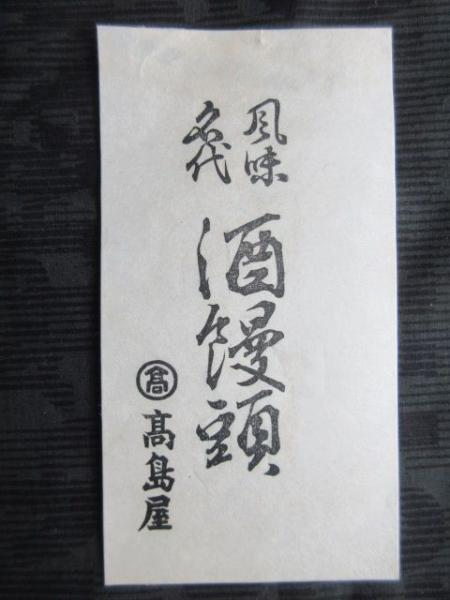 風味
名代
酒饅頭
髙
髙島屋